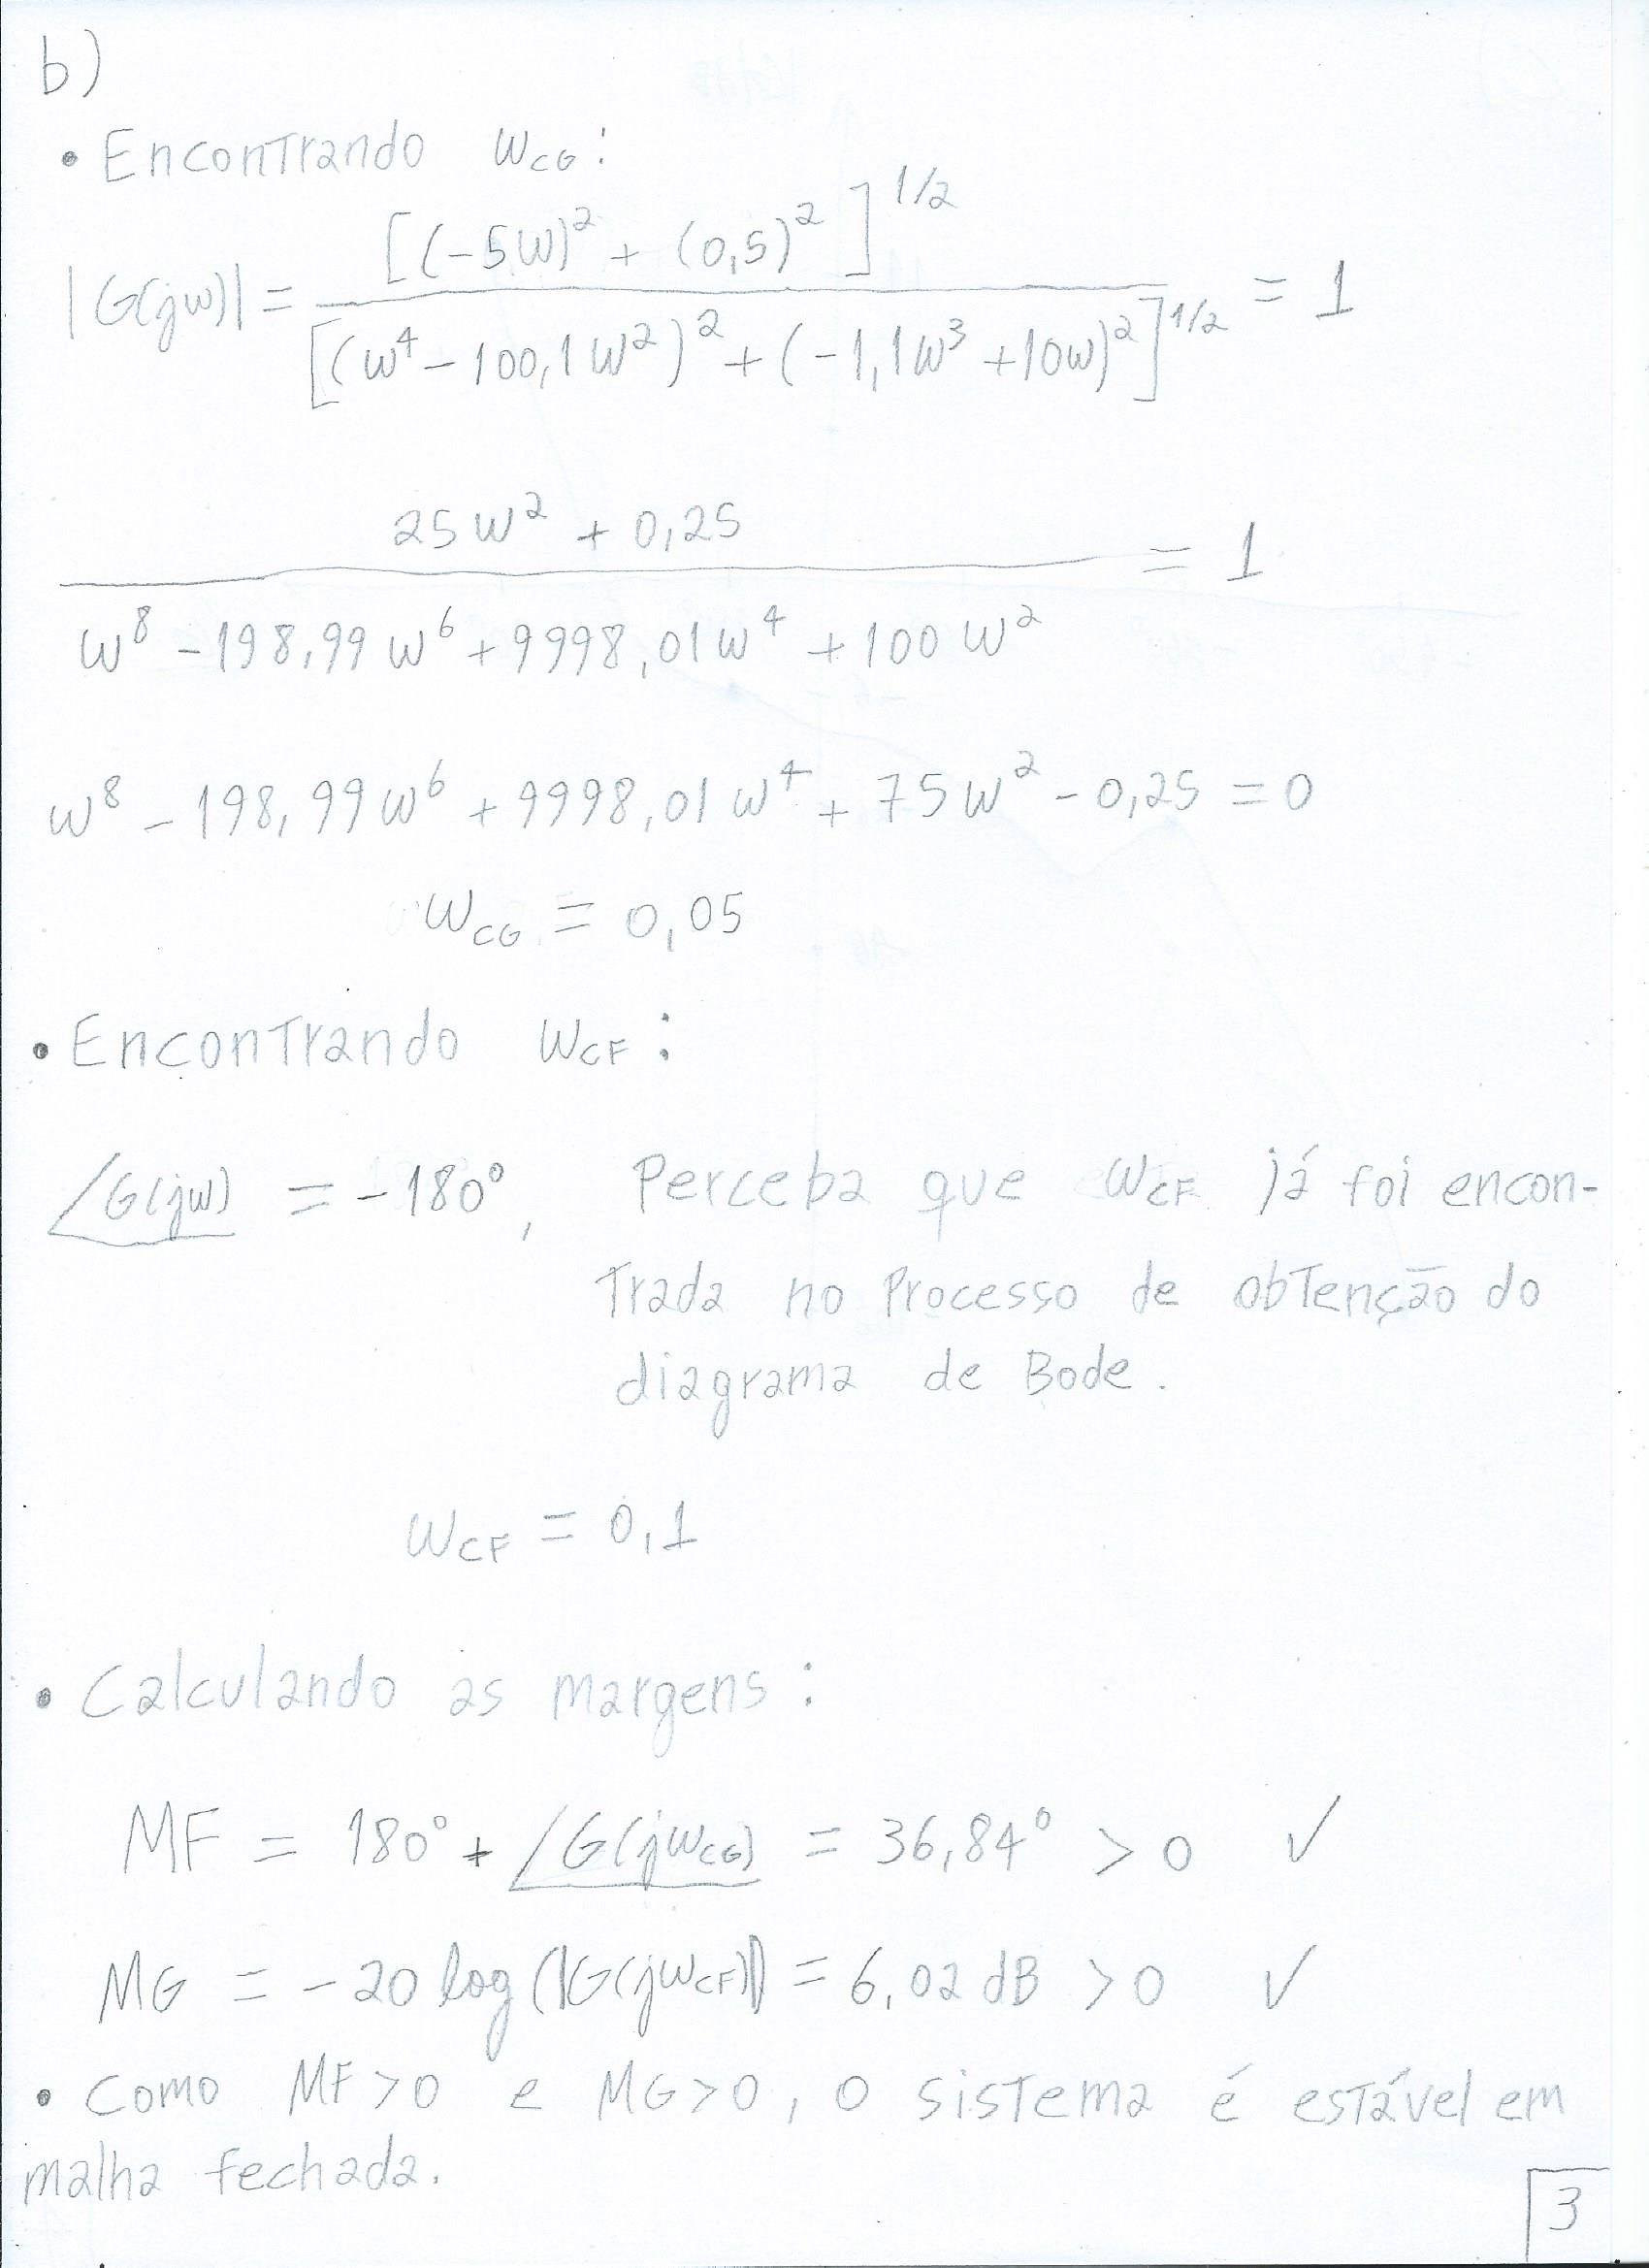 b)
• Encontrando ω_CG:
|G(jω)| = [(-5ω)² + (0,5)²]^1/2 / [(ω⁴ - 100,1ω²)² + (-1,1ω³ + 10ω)²]^1/2 = 1
25ω² + 0,25 / ω⁸ - 198,99ω⁶ + 9998,01ω⁴ + 100ω² = 1
ω⁸ - 198,99ω⁶ + 9998,01ω⁴ + 75ω² - 0,25 = 0
ω_CG = 0,05
• Encontrando ω_CF:
∠G(jω) = -180°, Perceba que ω_CF já foi encon-
trada no processo de obtenção do
diagrama de Bode.
ω_CF = 0,1
• Calculando as margens:
MF = 180° + ∠G(jω_CG) = 36,84° > 0 ✓
MG = -20 log(|G(jω_CF)|) = 6,02 dB > 0 ✓
• Como MF>0 e MG>0, o sistema é estável em
malha fechada.
3